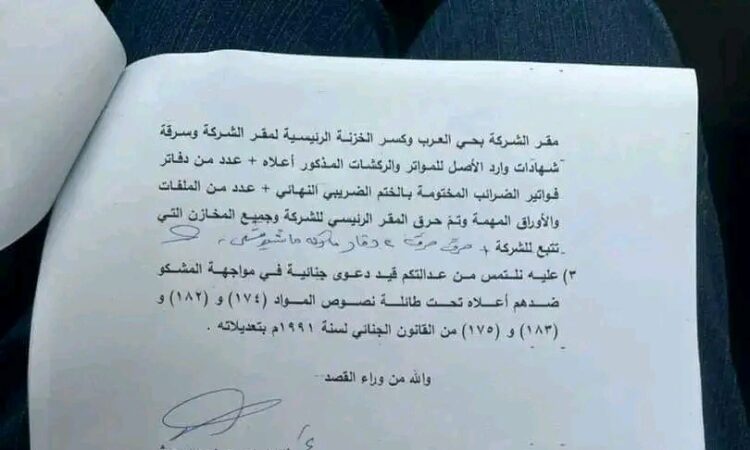 مقر الشركة بحي العرب وكسر الخزنة الرئيسية لمقر الشركة وسرقة
شهادات وارد الأصل للمواتر والركشات المذكور أعلاه + عدد من دفاتر
فواتير الضرائب المختومة بالختم الضريبي النهائي + عدد من الملفات
والأوراق المهمة وتم حرق المقر الرئيسي للشركة وجميع المخازن التي
تتبع للشركة +
٣) عليه نلتمس من عدالتكم قيد دعوى جنائية في مواجهة المشكو
ضدهم أعلاه تحت طائلة نصوص المواد (١٧٤) و (١٨٢) و
(١٨٣) و (١٧٥) من القانون الجنائي لسنة ١٩٩١م بتعديلاته .
والله من وراء القصد